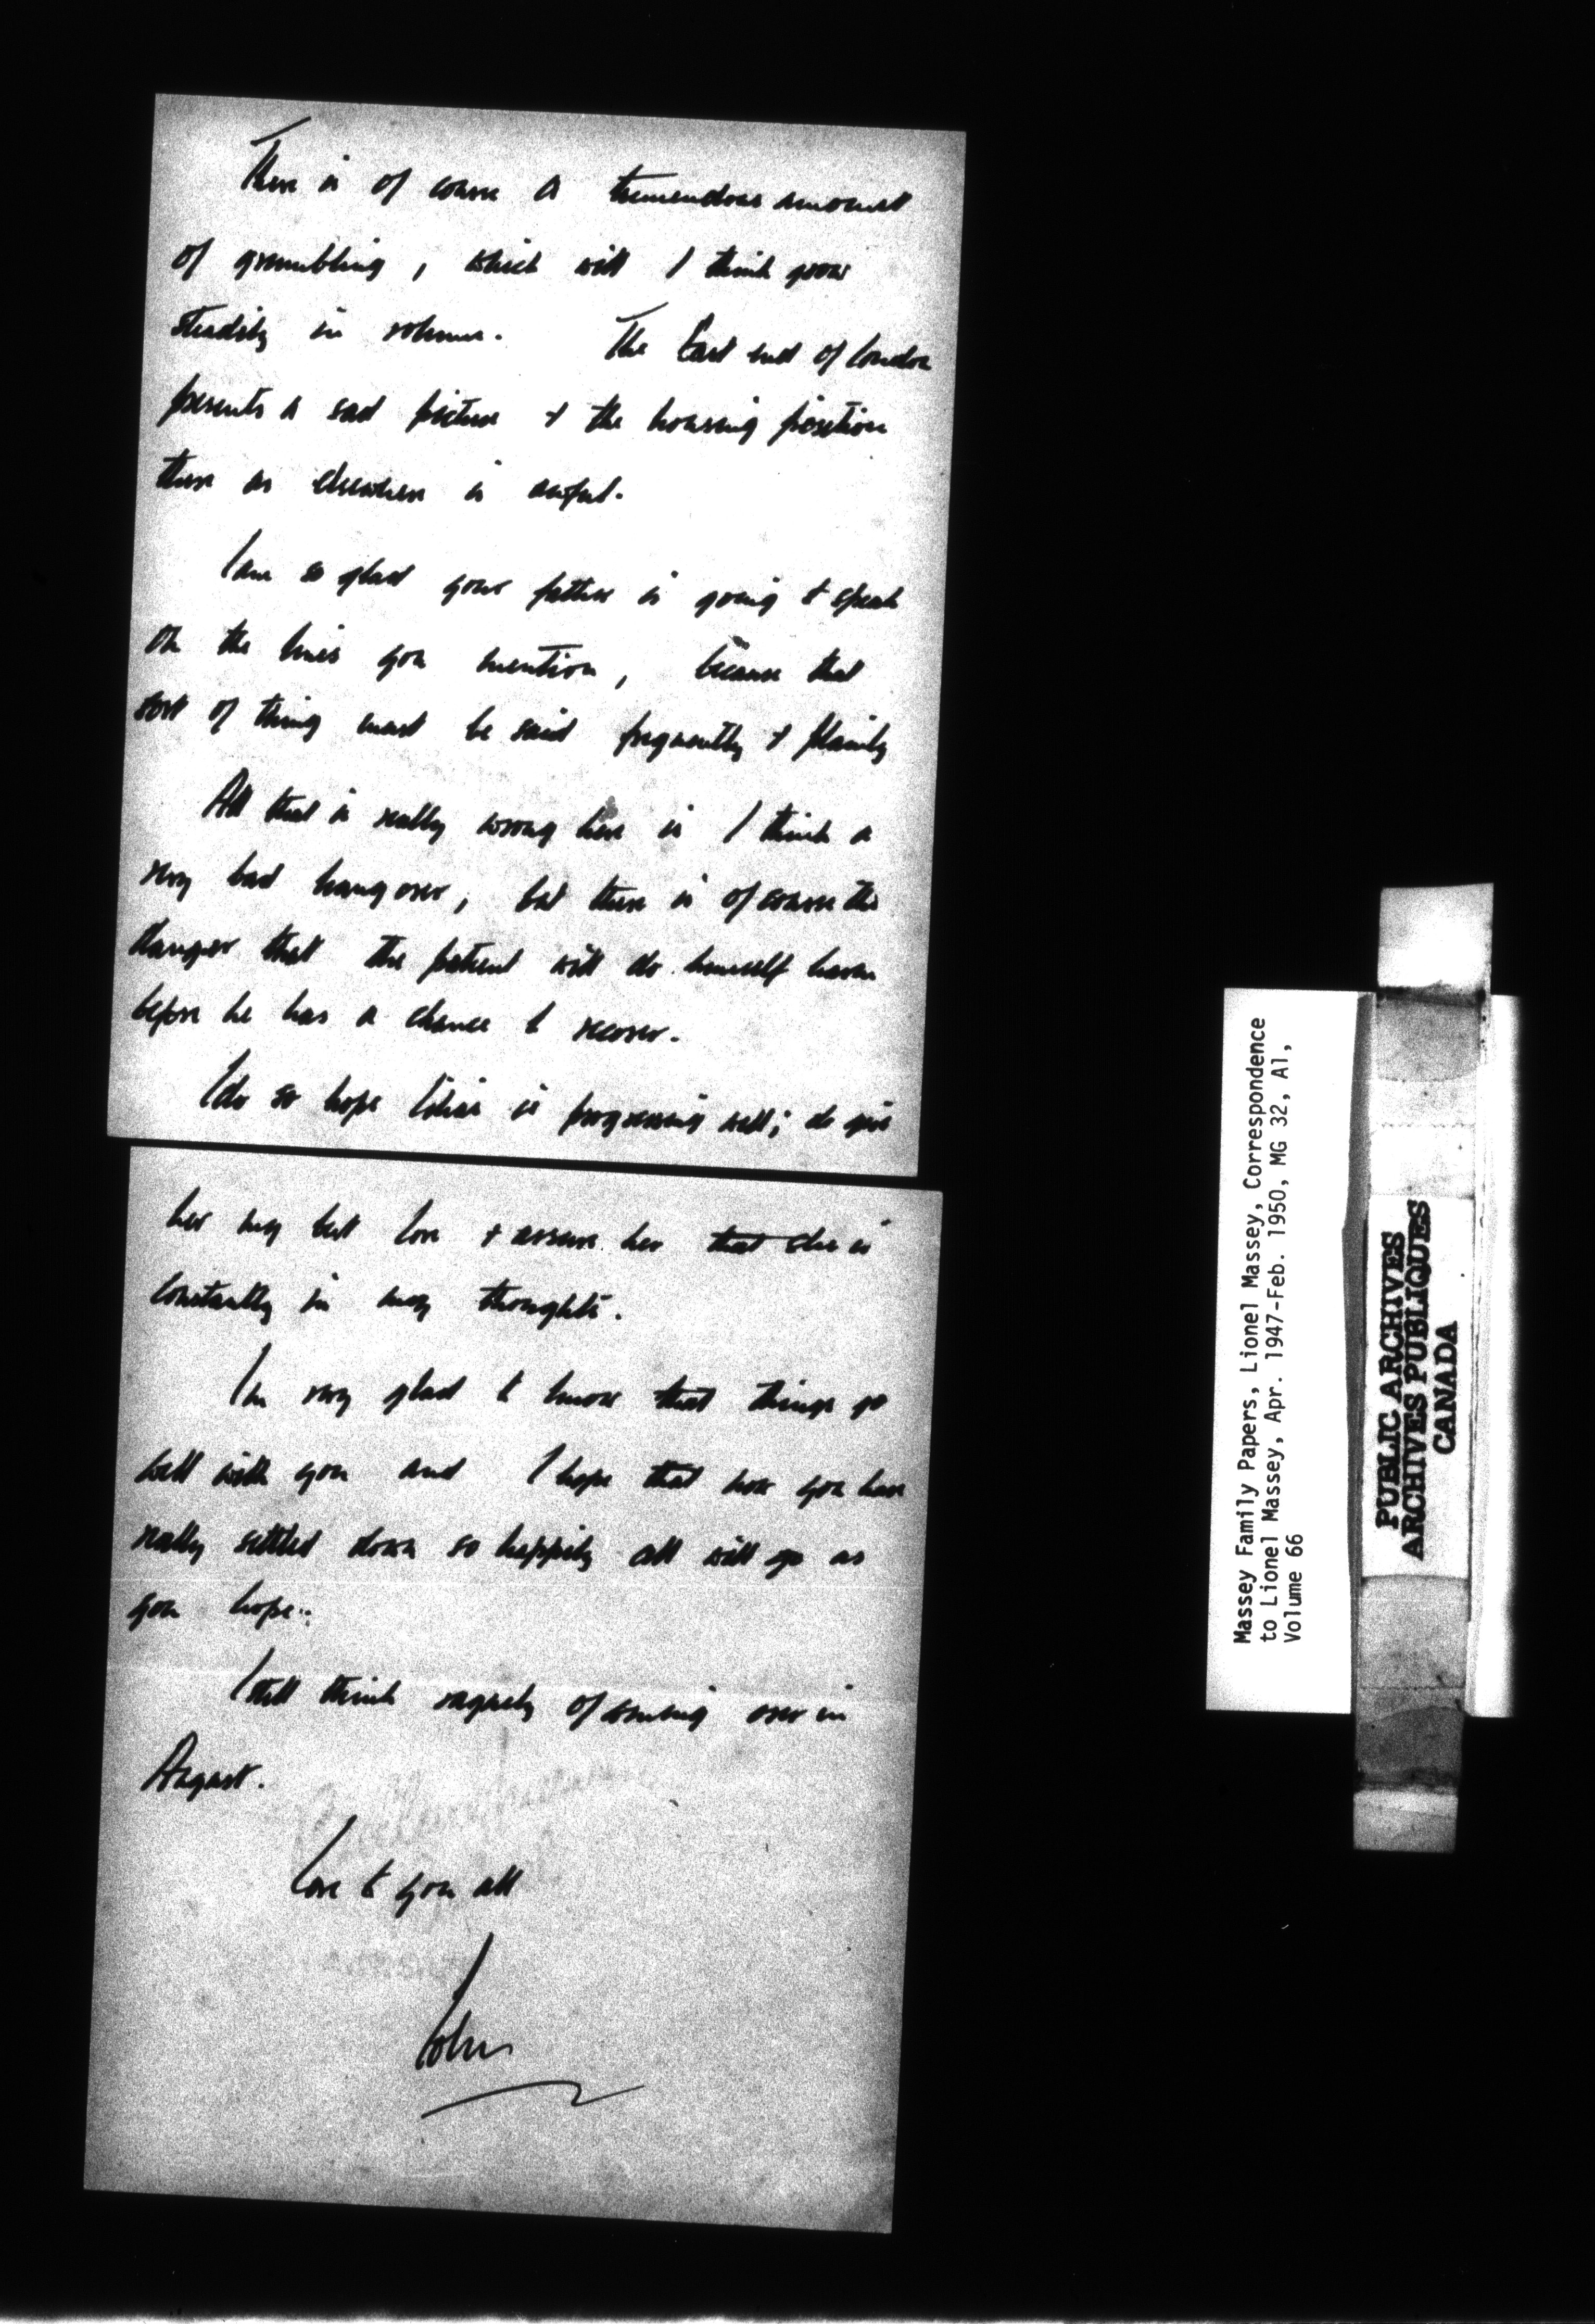 There is of course a tremendous amount
of grumbling, which will I think grow
steadily in volume. The East end of London
presents a sad picture + the housing position
there as elsewhere is awful.
I am so glad your father is going to speak
on the lines you mention, because that
sort of thing must be said frequently + plainly
All that is really wrong here is I think a
very bad hangover, but there is of course the
danger that the patient will do himself harm
before he has a chance to recover.
I do so hope Lilias is progressing well; do give
her my best love + assure her that she is
constantly in my thoughts.
I'm very glad to know that things go
well with you and I hope that now you have
really settled down so happily all will go as
you hope.
I still think vaguely of coming over in
August.
Love to you all
John
Massey Family Papers, Lionel Massey, Correspondence
to Lionel Massey, Apr. 1947-Feb. 1950, MG 32, A1,
Volume 66
PUBLIC ARCHIVES
ARCHIVES PUBLIQUES
CANADA